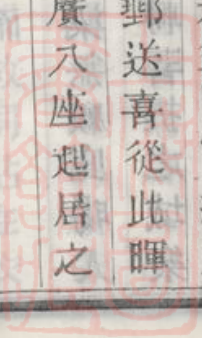 郵送喜從此暉
賡八座起居之